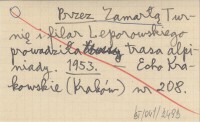 Przez Zamarłą Tur-
nię i filar Leporowskiego
prowadziła trasa alpi-
niady. 1953. – Echo Kra-
kowskie (Kraków) nr 208.